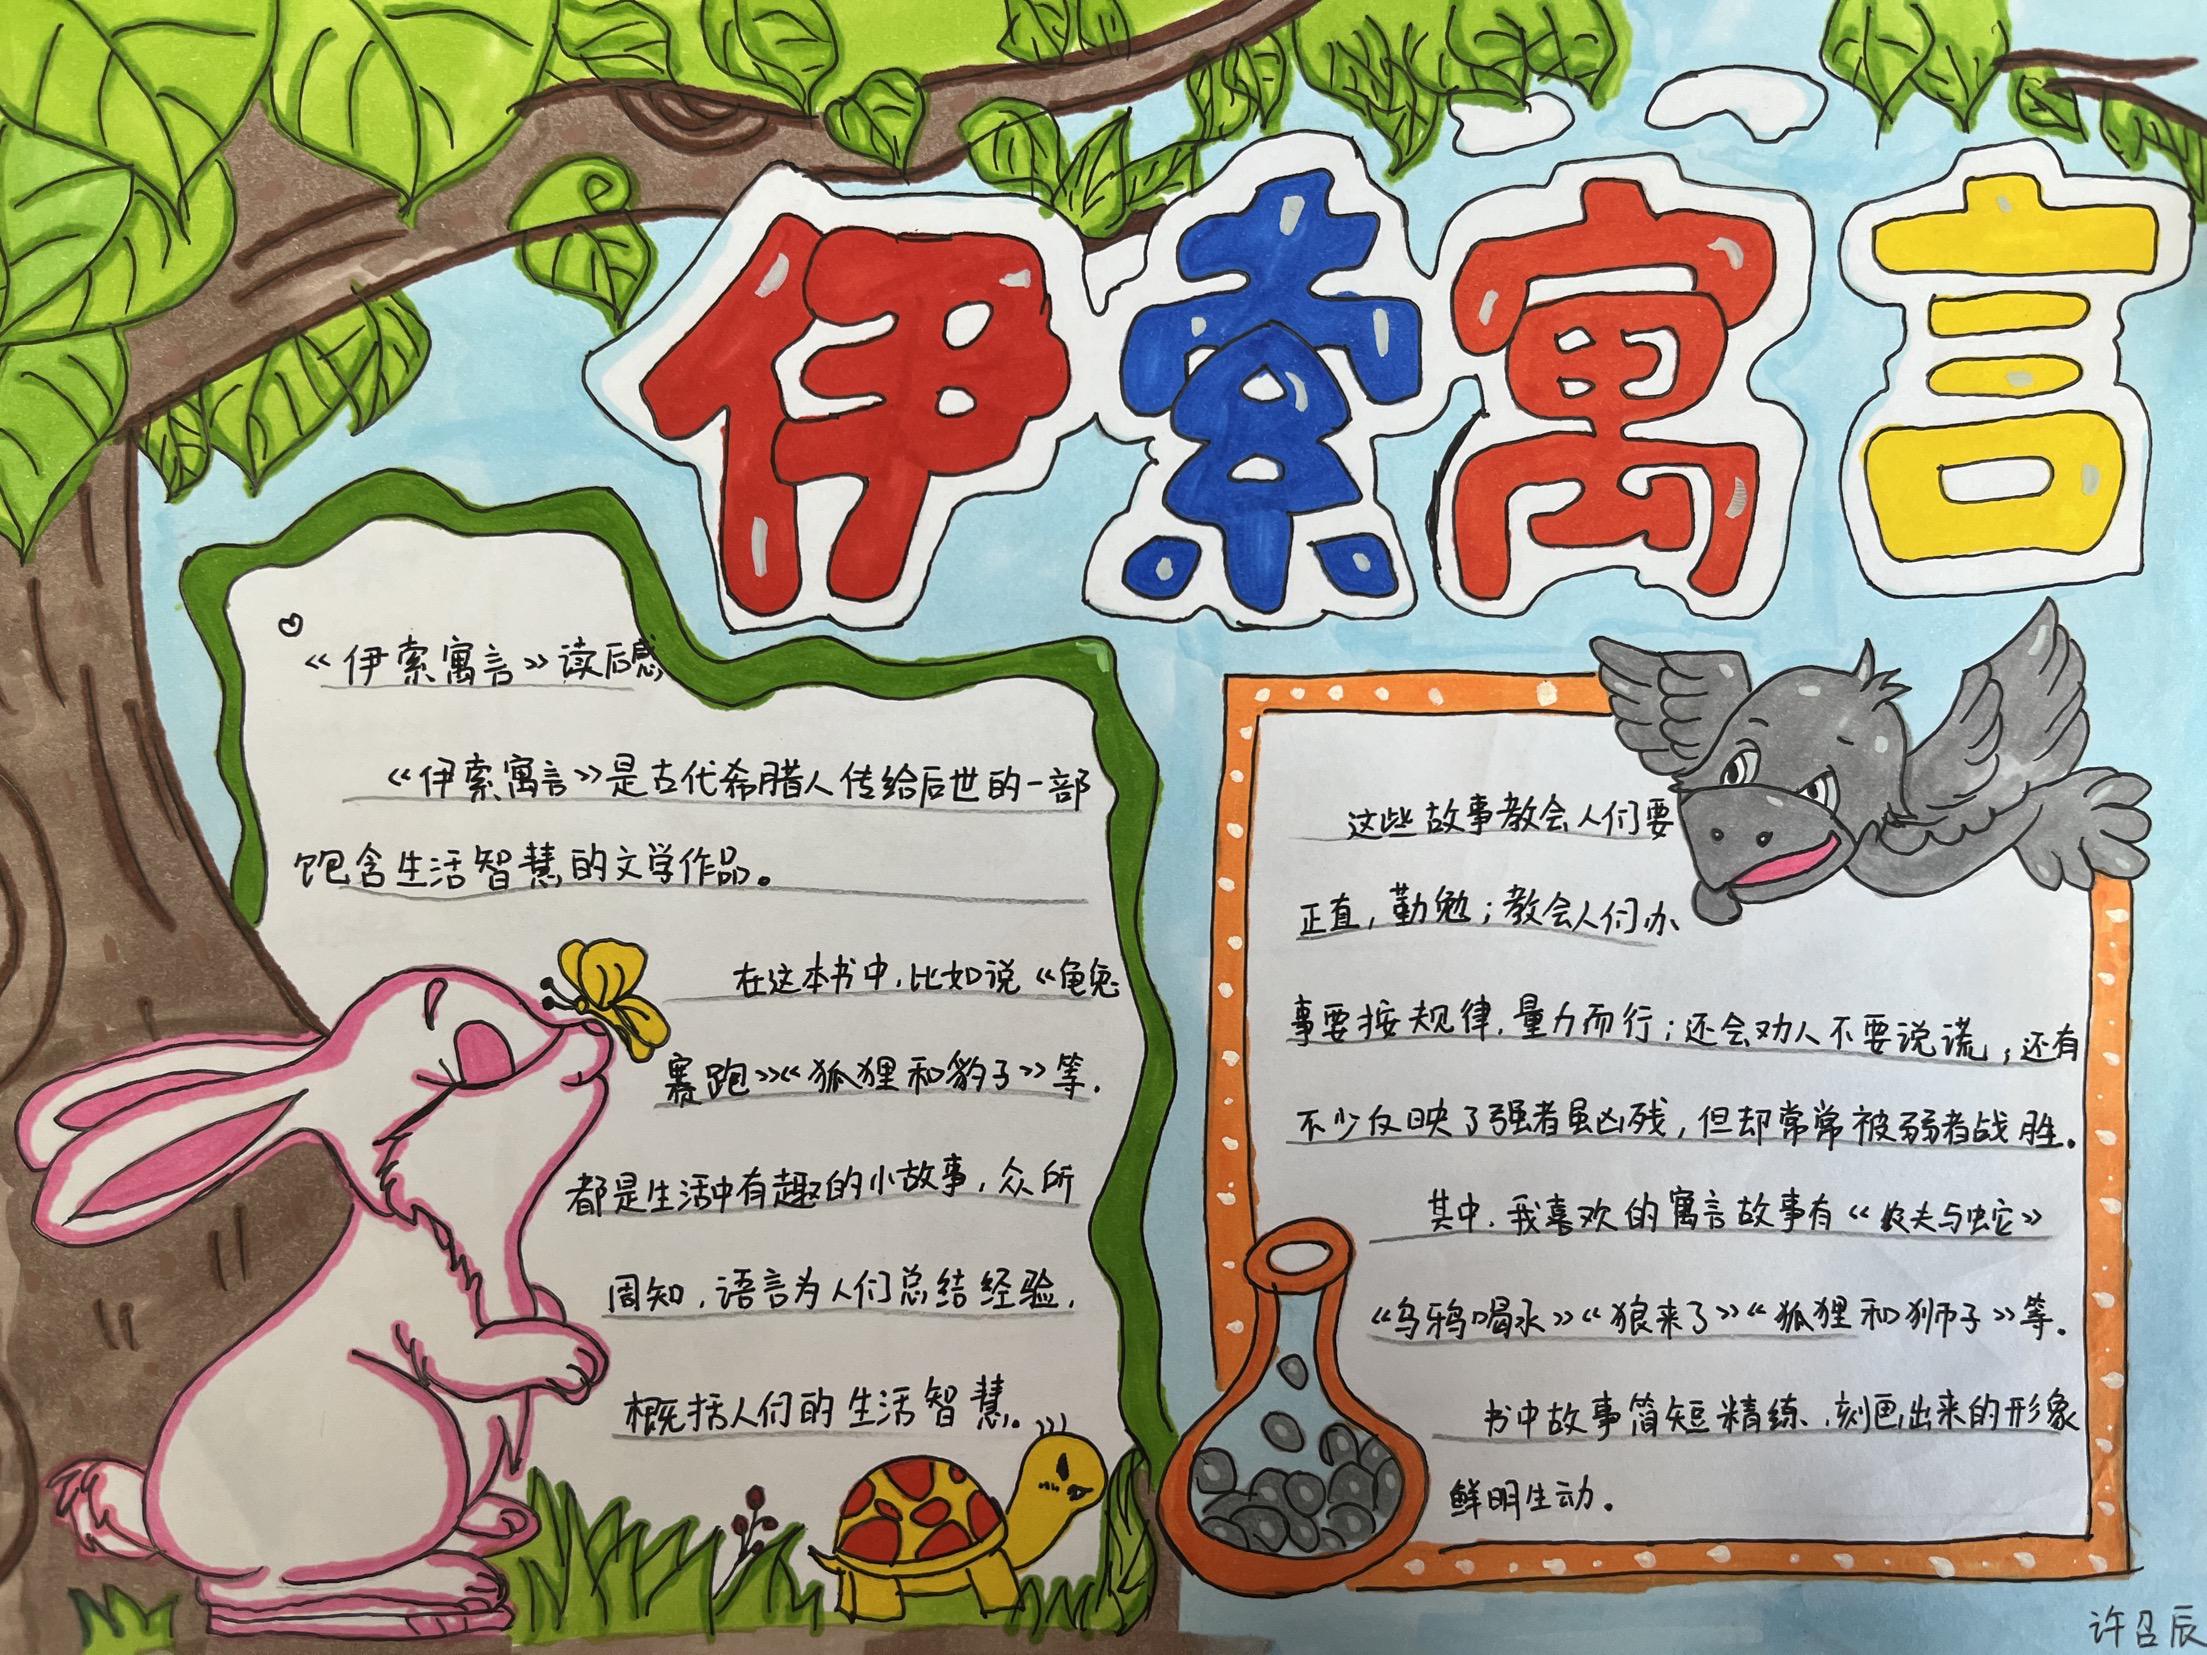 伊索寓言
《伊索寓言》读后感
《伊索寓言》是古代希腊人传给后世的一部
饱含生活智慧的文学作品。
在这本书中,比如说《龟兔
赛跑》《狐狸和豹子》等.
都是生活中有趣的小故事,众所
周知,语言为人们总结经验,
概括人们的生活智慧。
这些故事教会人们要
正直,勤勉;教会人们办
事要按规律,量力而行;还会劝人不要说谎,还有
不少反映了强者虽凶残,但却常常被弱者战胜.
其中,我喜欢的寓言故事有《农夫与蛇》
《乌鸦喝水》《狼来了》《狐狸和狮子》等.
书中故事简短精练,刻画出来的形象
鲜明生动.
许召辰